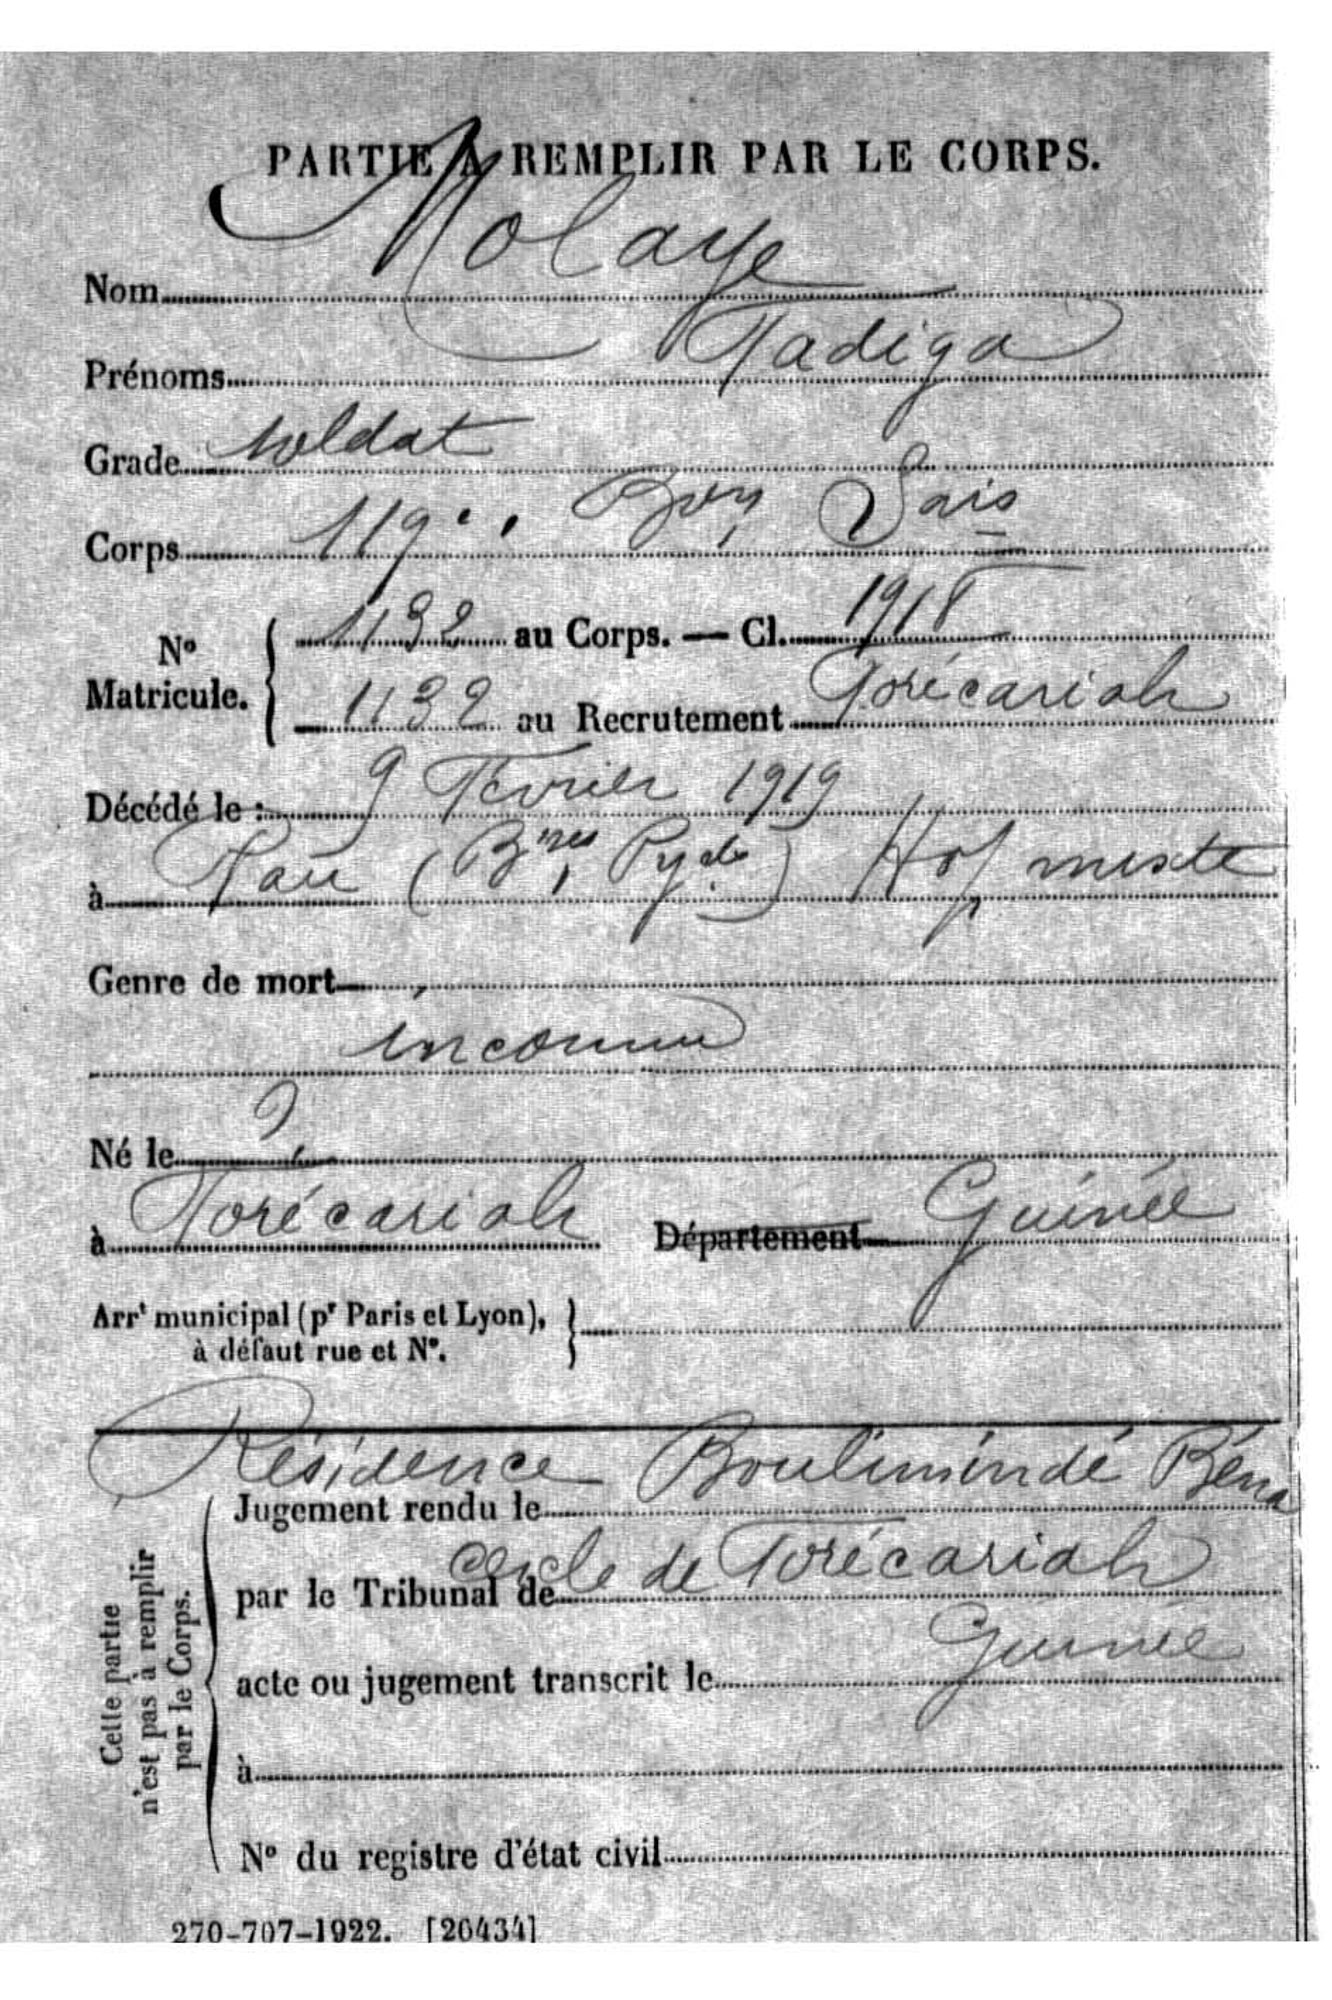 PARTIE A REMPLIR PAR LE CORPS.
Nom Molaye
Prénoms Fadiga
Grade soldat
Corps 119e Bon Sais
No Matricule. { 1132 au Corps. — Cl. 1918
1132 au Recrutement Forécariah
Décédé le : 9 Février 1919
à Pau (Bses Pyrées) Hop mixte
Genre de mort
inconnu
Né le ?
à Forécariah Département Guinée
Arrt municipal (pr Paris et Lyon), }
à défaut rue et No.
Résidence Boulimindé Béna
Jugement rendu le
cercle de Forécariah
par le Tribunal de
Guinée
acte ou jugement transcrit le
à
No du registre d'état civil
Cette partie
n'est pas à remplir
par le Corps.
270-707-1922. [26434]